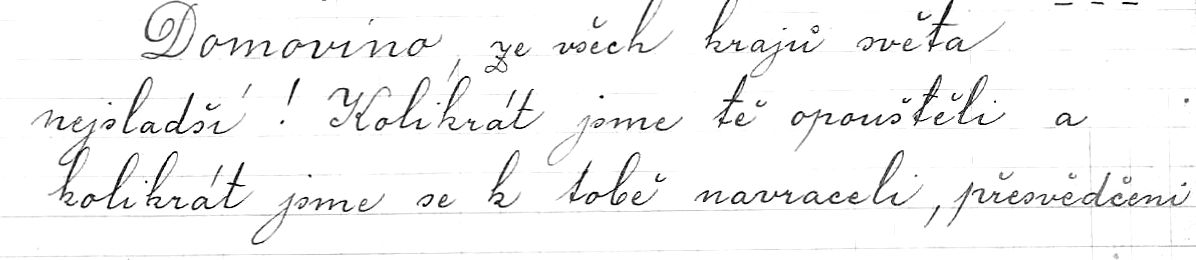 Domovino, ze všech krajů světa
nejsladší! Kolikrát jsme tě opouštěli a
kolikrát jsme se k tobě navraceli, přesvědčeni